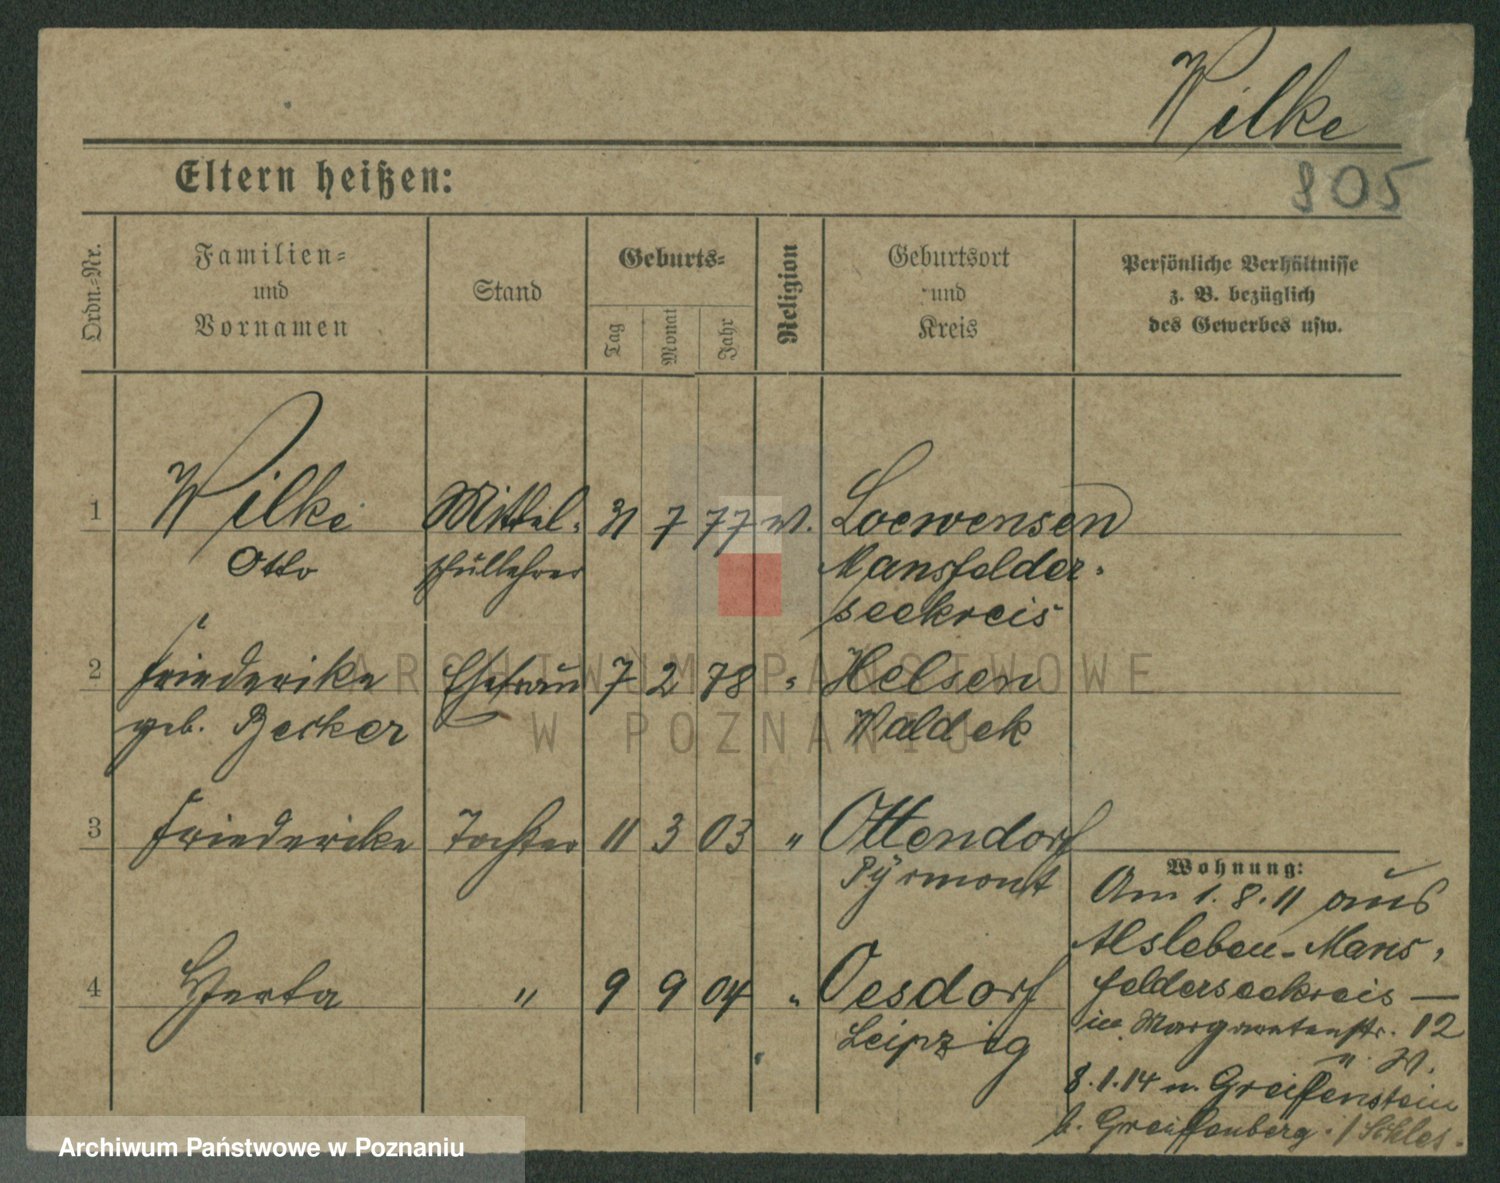 Wilke
805
Eltern heißen:
Ordn.-Nr.
Familien-
und
Vornamen
Stand
Geburts-
Tag
Monat
Jahr
Religion
Geburtsort
und
Kreis
Persönliche Verhältnisse
z. B. bezüglich
des Gewerbes usw.
1 Wilke Mittel- 31 7 77 Loewensen
Otto schullehrer Mansfelder-
seekreis
2 Friederike Ehefrau 7 2 78 " Helsen
geb. Becker Waldek
3 Friederike Tochter 11 3 03 " Ottendorf
Pyrmont
4 Herta " 9 9 04 " Oesdorf
Leipzig
Wohnung:
Am 1.8.11 aus
Alsleben-Mans-
felderseekreis —
in Margaretenstr. 12
8.1.14 n. Greiffenstein
b. Greiffenberg / Schles.
ARCHIWUM PAŃSTWOWE
W POZNANIU
Archiwum Państwowe w Poznaniu